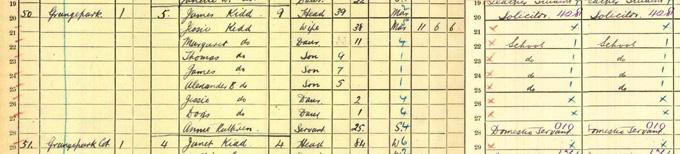 20 50 Grangepark 1 5 James Kidd 9 Head 39 Mar 20 Solicitor 408 Solicitor 408
21 Jessie Kidd Wife 38 Mar 11 6 6 21 x x
22 Margaret do Daur 11 22 School 1 School 1
23 Thomas do Son 9 1 23 do 1 do 1
24 James do Son 7 1 24 do 1 do 1
25 Alexander do Son 5 1 25 do 1 do 1
26 Jessie do Daur 2 26 x x
27 Doris do Daur 1 27 x x
28 Annie Servant 25 S 28 Domestic Servant 010 Domestic Servant 010
29 51 Grangepark Cot 1 4 Janet Kidd 4 Head 84 W 29 x x